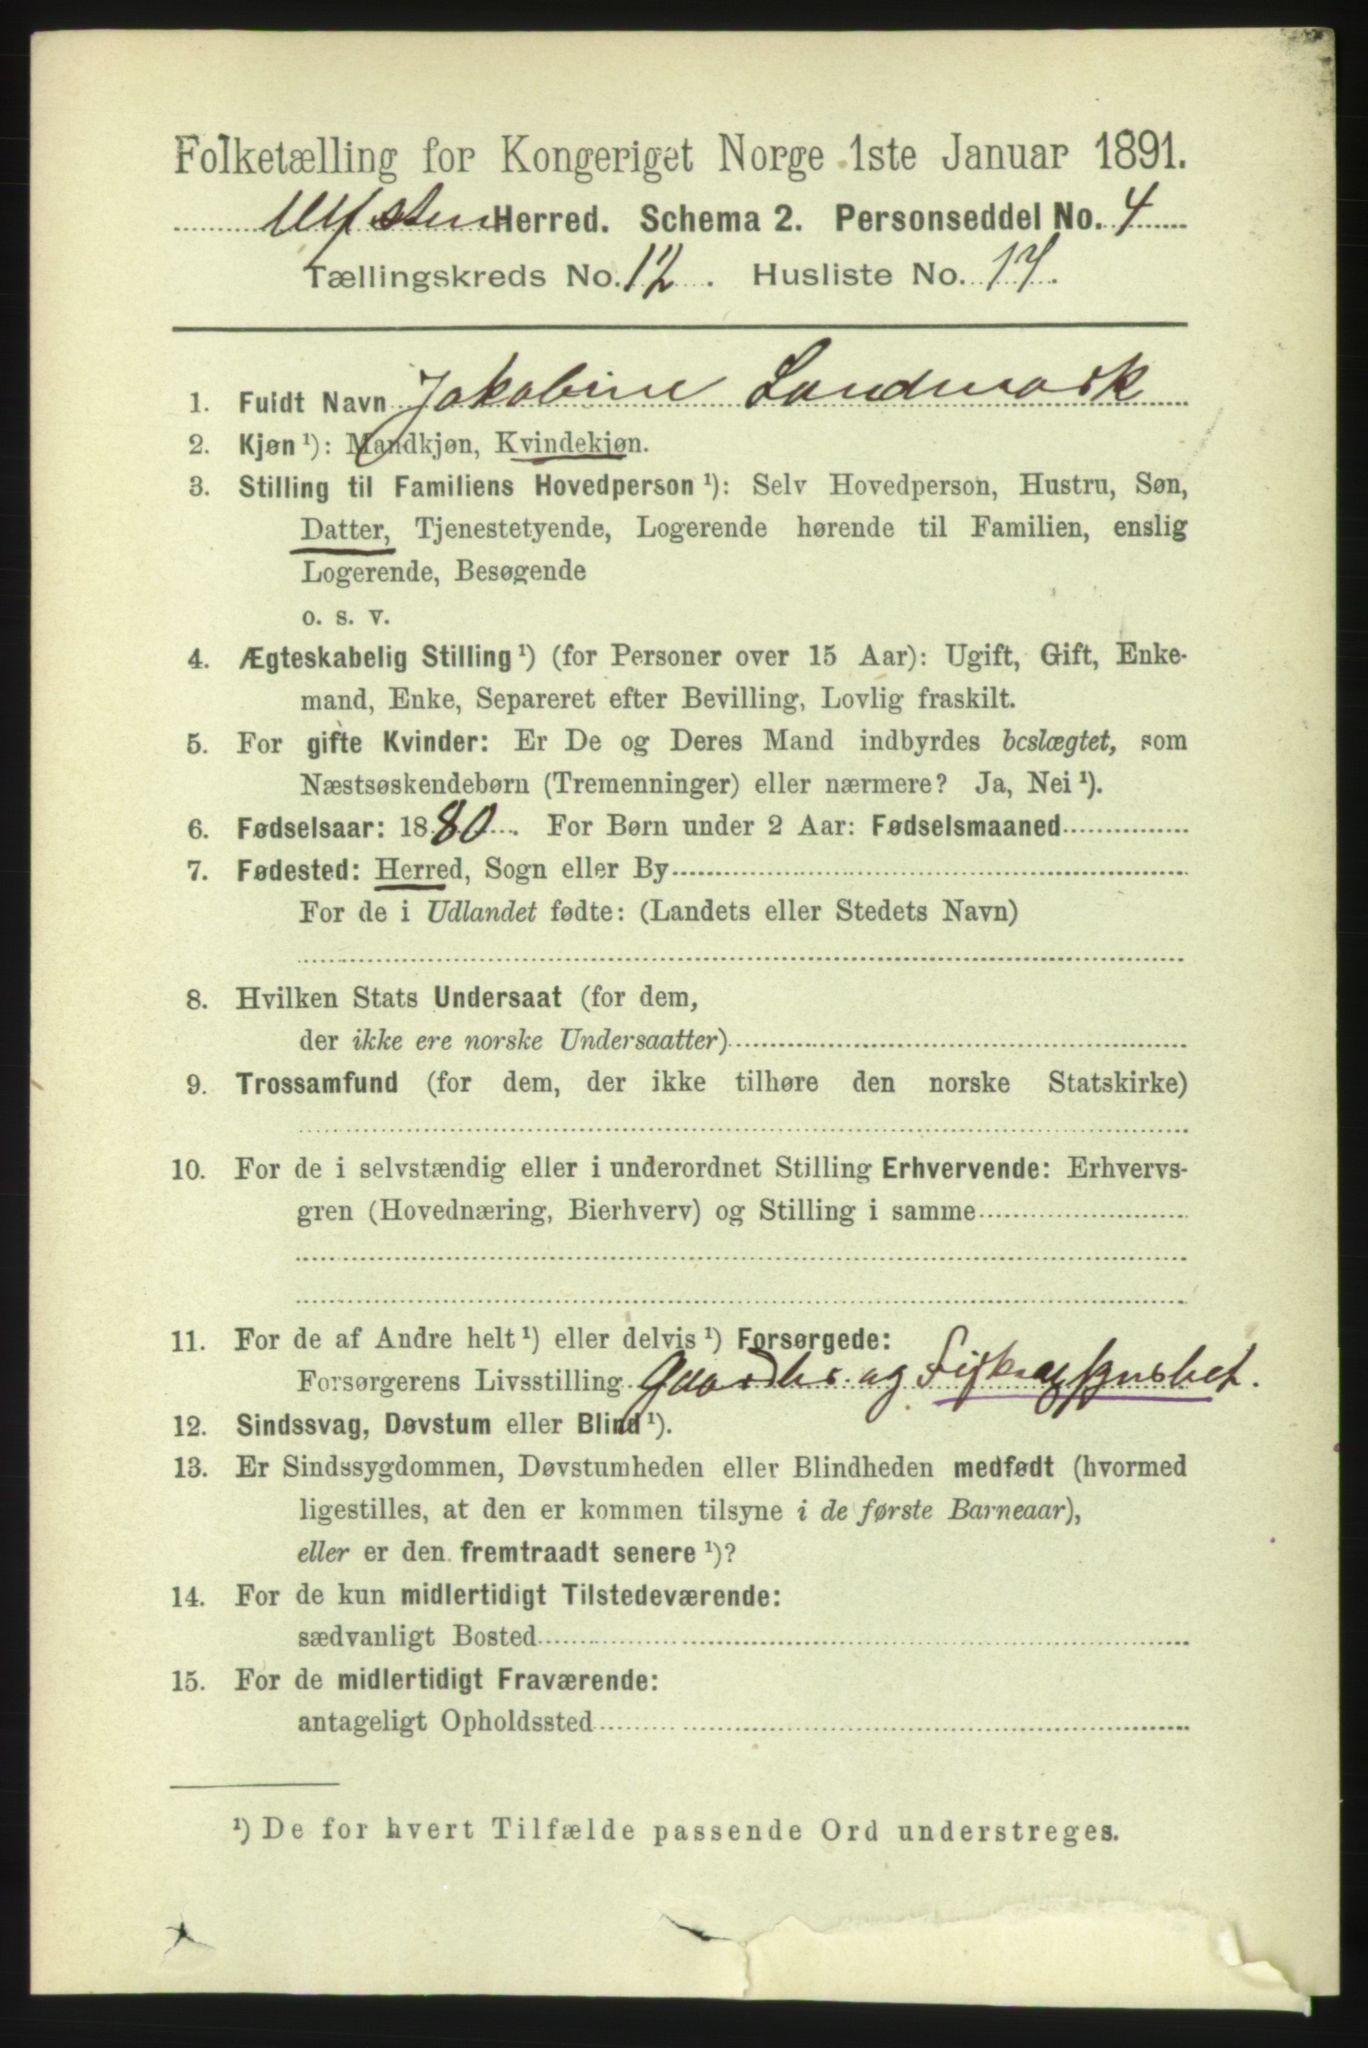 Folketælling for Kongeriget Norge 1ste Januar 1891.
Ulfsten Herred. Schema 2. Personseddel No. 4
Tællingskreds No. 12. Husliste No. 17.
1. Fuldt Navn Jakobine Landmark
2. Kjøn ¹): Mandkjøn, Kvindekjøn.
3. Stilling til Familiens Hovedperson ¹): Selv Hovedperson, Hustru, Søn,
Datter, Tjenestetyende, Logerende hørende til Familien, enslig
Logerende, Besøgende
o. s. v.
4. Ægteskabelig Stilling ¹) (for Personer over 15 Aar): Ugift, Gift, Enke-
mand, Enke, Separeret efter Bevilling, Lovlig fraskilt.
5. For gifte Kvinder: Er De og Deres Mand indbyrdes beslægtet, som
Næstsøskendebørn (Tremenninger) eller nærmere? Ja, Nei ¹).
6. Fødselsaar: 1880. For Børn under 2 Aar: Fødselsmaaned
7. Fødested: Herred, Sogn eller By
For de i Udlandet fødte: (Landets eller Stedets Navn)
8. Hvilken Stats Undersaat (for dem,
der ikke ere norske Undersaatter)
9. Trossamfund (for dem, der ikke tilhøre den norske Statskirke)
10. For de i selvstændig eller i underordnet Stilling Erhvervende: Erhvervs-
gren (Hovednæring, Bierhverv) og Stilling i samme
11. For de af Andre helt ¹) eller delvis ¹) Forsørgede:
Forsørgerens Livsstilling Gaardbr. og
12. Sindssvag, Døvstum eller Blind ¹).
13. Er Sindssygdommen, Døvstumheden eller Blindheden medfødt (hvormed
ligestilles, at den er kommen tilsyne i de første Barneaar),
eller er den fremtraadt senere ¹)?
14. For de kun midlertidigt Tilstedeværende:
sædvanligt Bosted
15. For de midlertidigt Fraværende:
antageligt Opholdssted
¹) De for hvert Tilfælde passende Ord understreges.